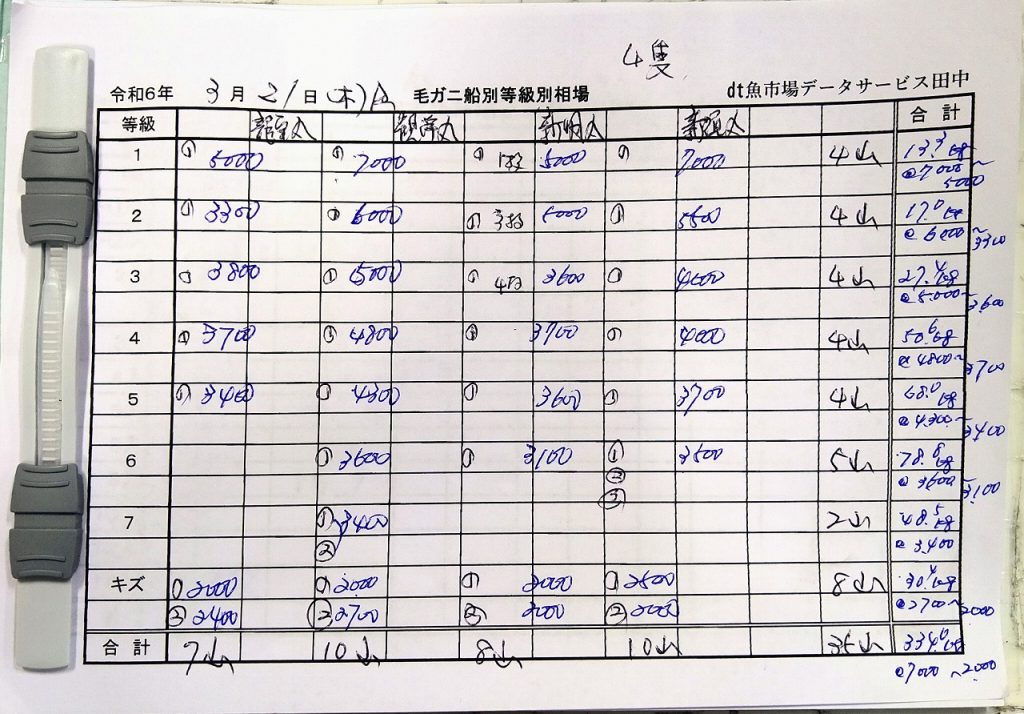 4隻
令和6年 3月21日(木) 毛ガニ船別等級別相場 dt魚市場データサービス田中
等級 合計
1 ① 5000 ① 7000 ① 1段 5000 ① 7000 4山 13.3kg
@7000~5000
2 ① 3300 ① 6000 ① 3段 5000 ① 5500 4山 17.0kg
@6000~3300
3 ① 3800 ① 5000 ① 4段 3600 ① 4600 4山 27.4kg
@5.000~3.600
4 ① 3700 ① 4800 ① 3700 ① 4000 4山 50.6kg
@4800~3700
5 ① 3400 ① 4300 3600 ① 3700 4山 68.0kg
@4.300~3400
6 ① 3600 ① 3100 ① 3500 5山 78.8kg
② @3600~3.100
③
7 ① 3400 2山 48.5kg
② @3.400
キズ ① 2000 ① 2000 ① 2000 ① 2500 8山 30.4kg
② 2400 ② 2700 ② 2000 ② 2000 @2700~2000
合計 7山 10山 8山 10山 35山 334.0kg
@7000~2.000